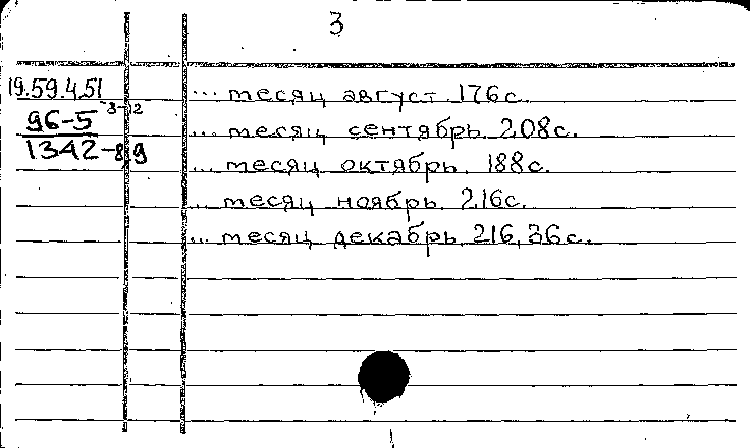 3
19.59.4.51
... месяц август. 176с.
96-5 8-12
... месяц сентябрь. 208с.
1342-8,9
... месяц октябрь. 188с.
... месяц ноябрь. 216с.
... месяц декабрь. 216, 36с.